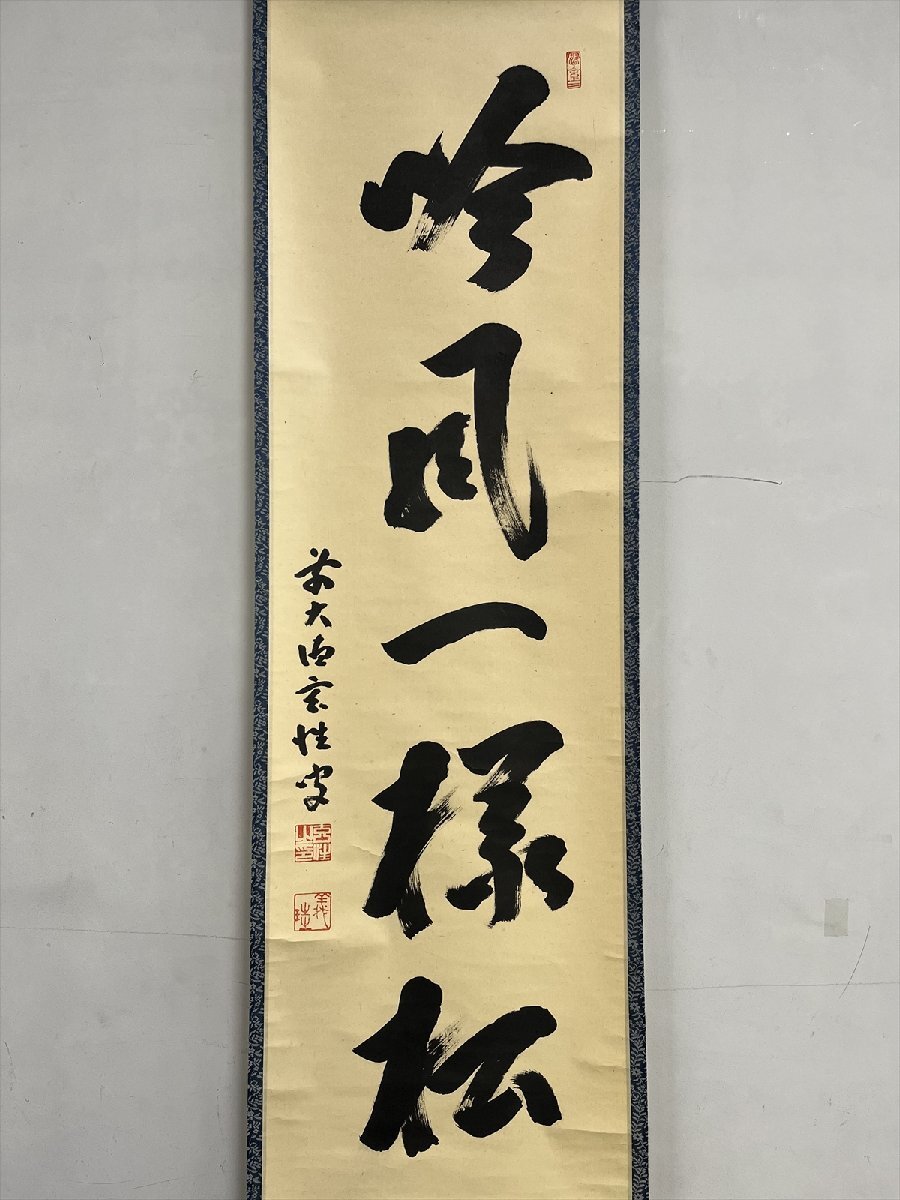 吟風一様松
前大徳玄性叟